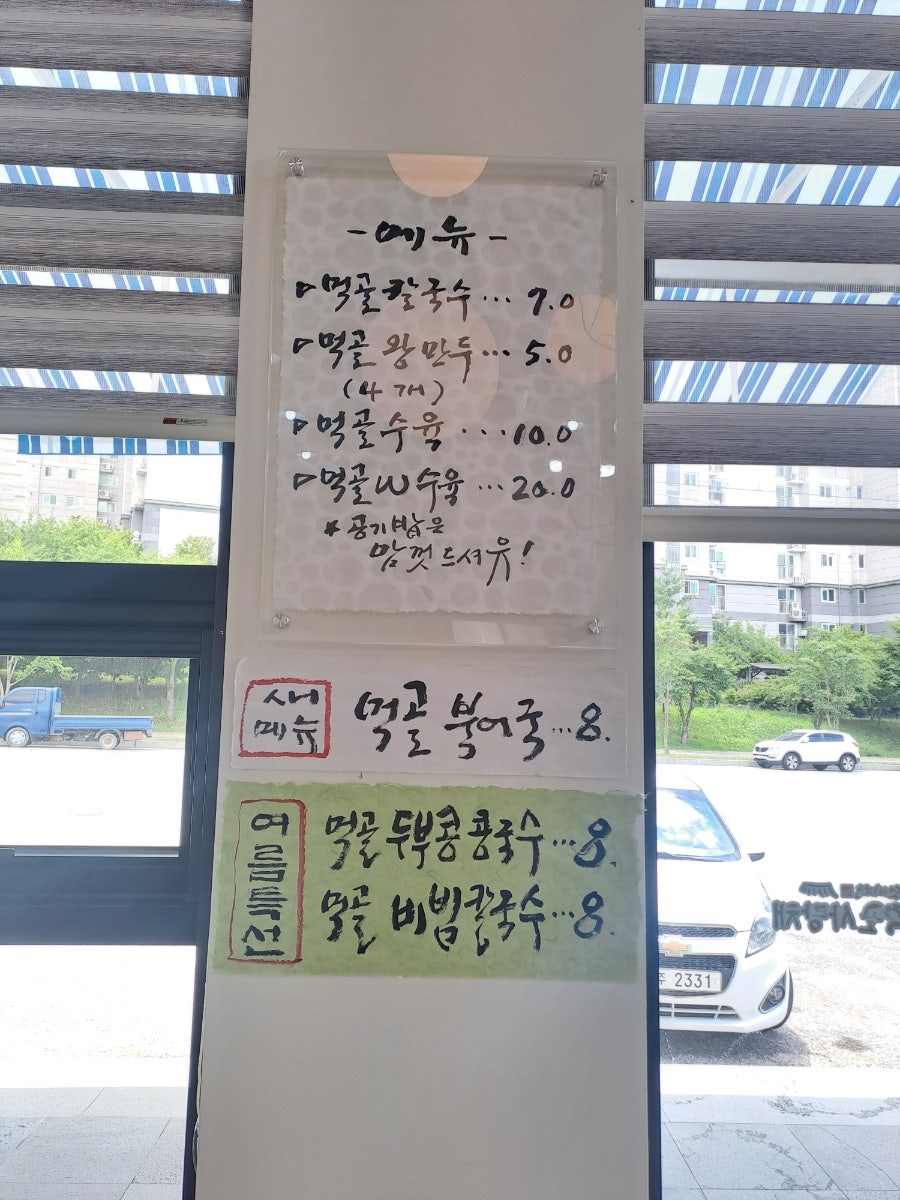 -메뉴-
▷먹골칼국수...7.0
▷먹골 왕만두...5.0
(4개)
▷먹골수육...10.0
▷먹골W수육...20.0
*공기밥은
맘껏드셔유!
새
메뉴
먹골 북어국...8.
여름특선
먹골 두부콩콩국수...8.
먹골 비빔칼국수...8.
2331